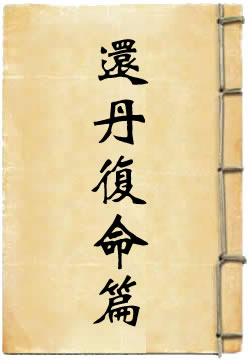 還丹復命篇